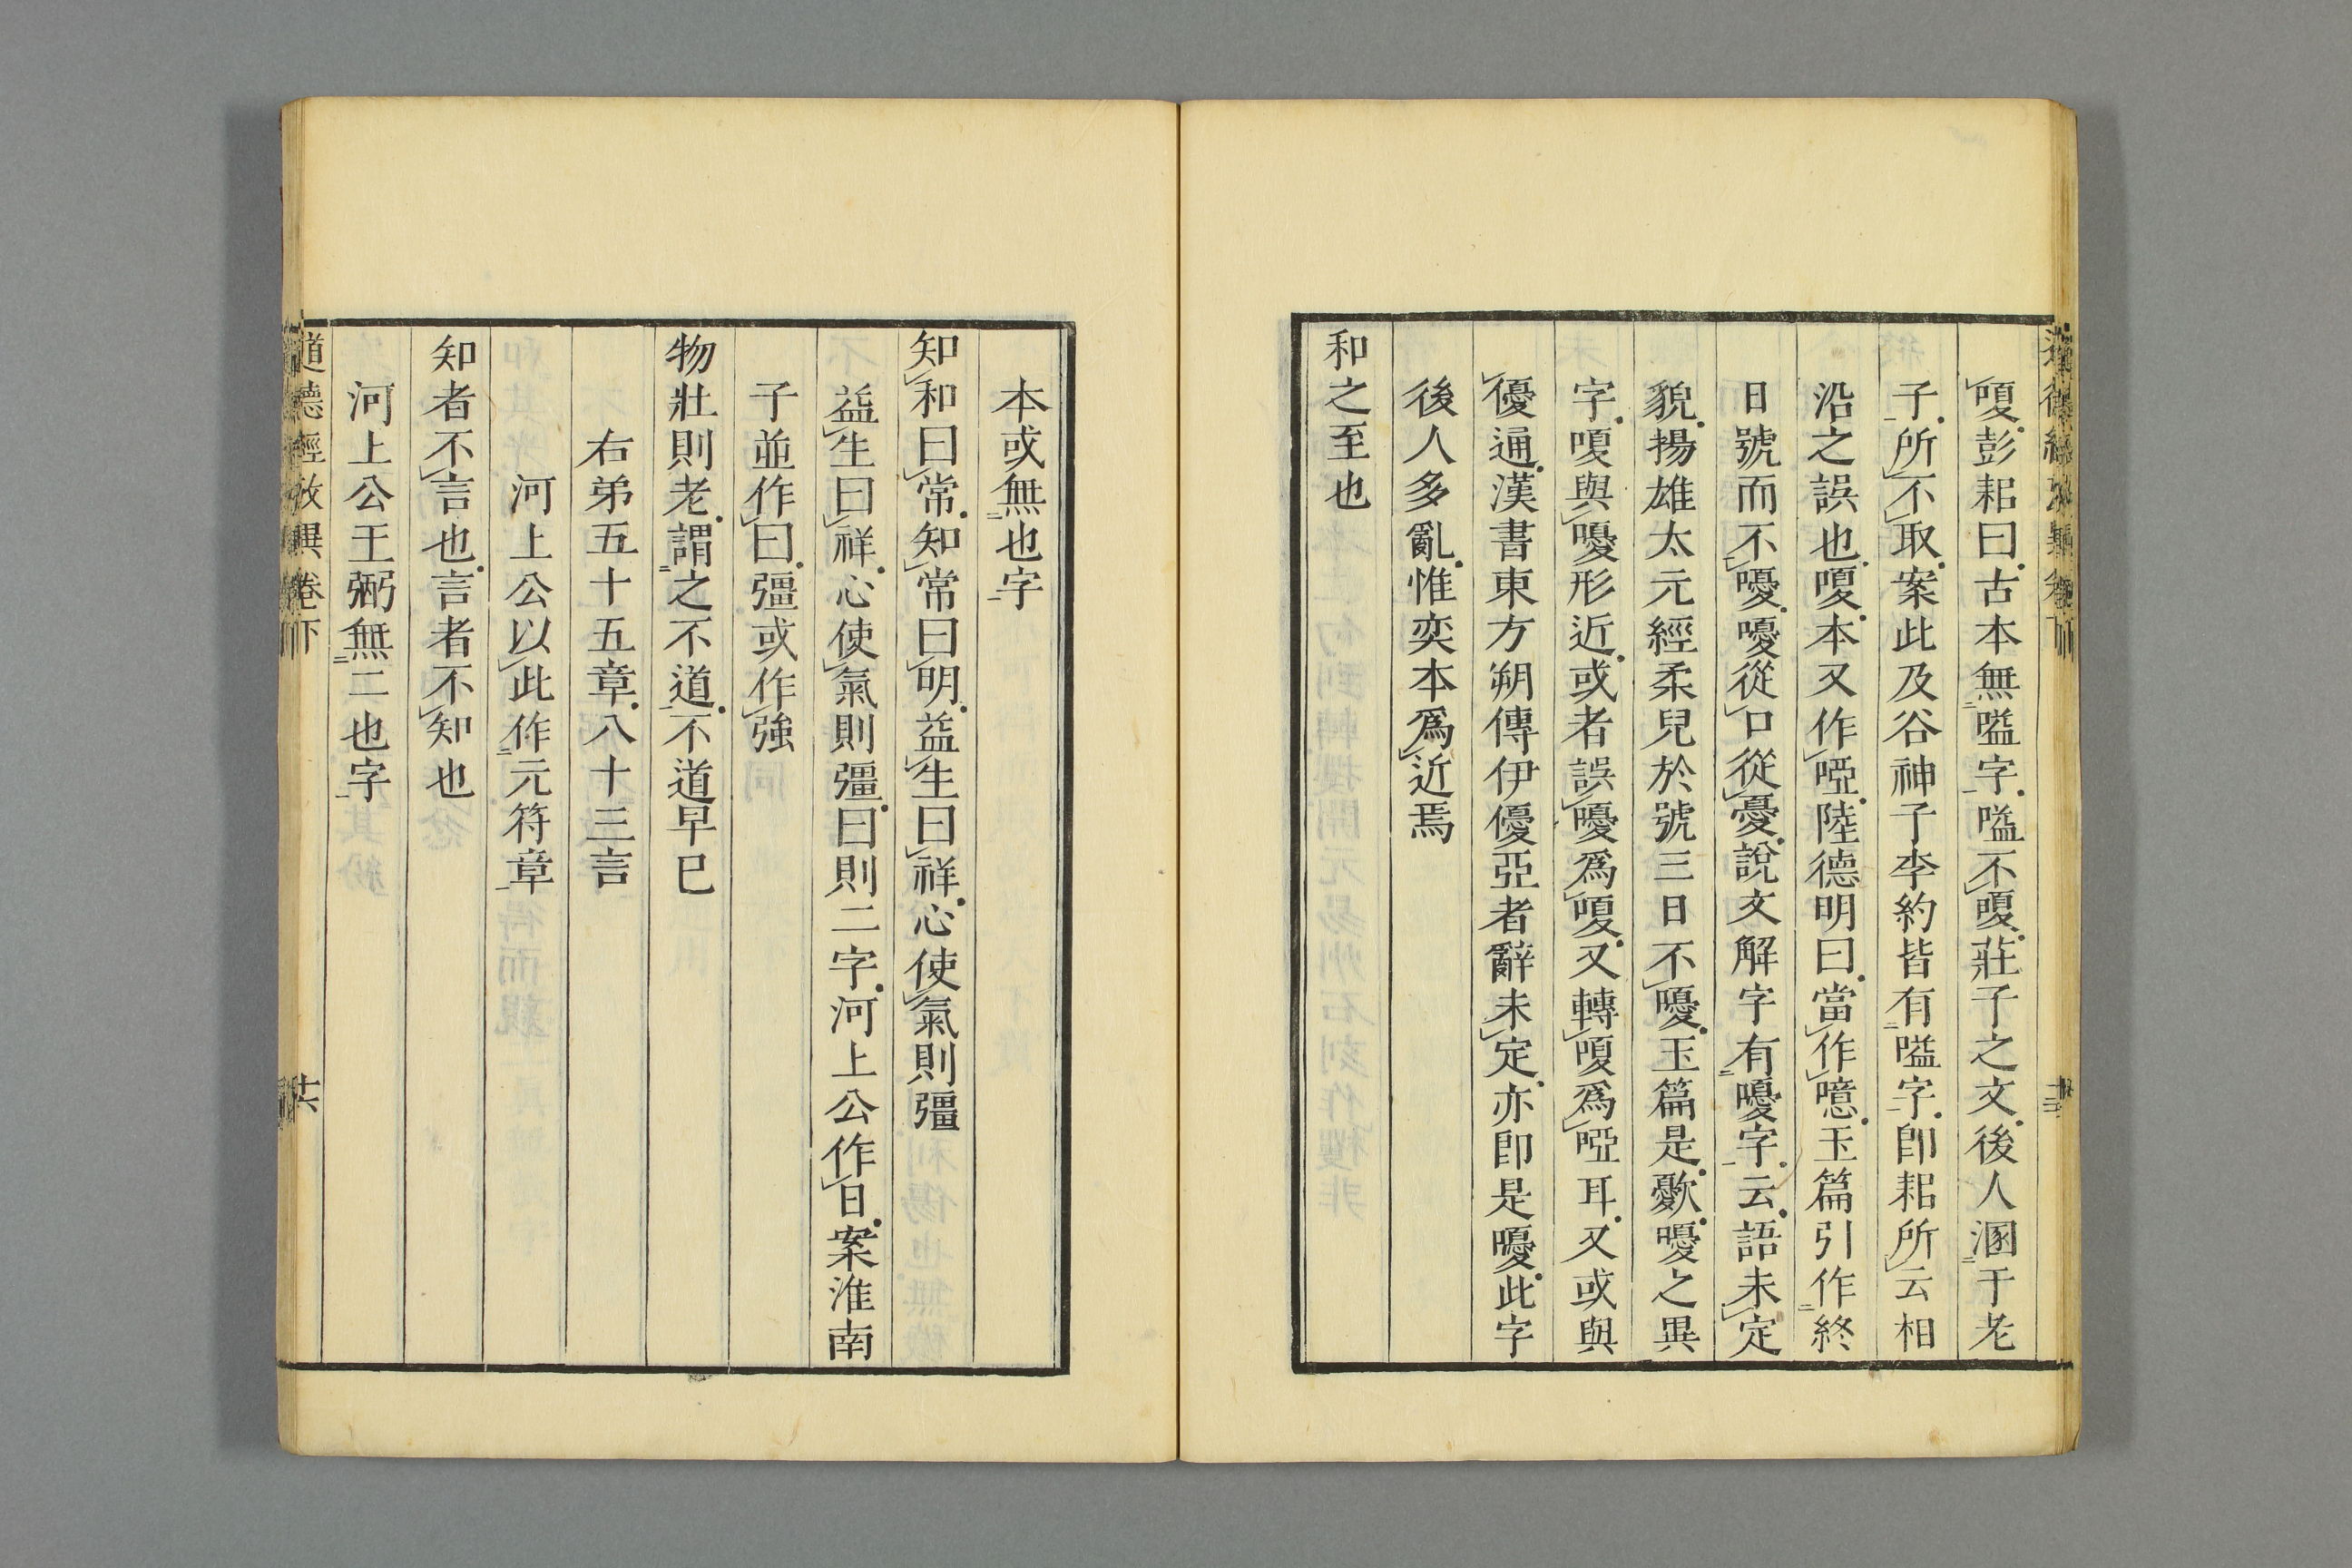 嗄彭耜曰古本無嗌字嗌不嗄莊子之文後人溷于老
子所不取案此及谷神子李約皆有嗌字卽耜所云相
沿之誤也嗄本又作啞陸德明曰當作噫玉篇引作終
日號而不嚘嚘從口從憂說文解字有嚘字云語未定
貌揚雄太元經柔兒於號三日不嚘玉篇是歐嚘之異
字嗄與嚘形近或者誤嚘爲嗄又轉嗄爲啞耳又或與
優通漢書東方朔傳伊優亞者辭未定亦卽是嚘此字
後人多亂惟奕本爲近焉
和之至也
本或無也字
知和曰常知常曰明益生曰祥心使氣則彊
益生曰祥心使氣則彊曰則二字河上公作日案淮南
子並作曰彊或作強
物壯則老謂之不道不道早已
右弟五十五章八十三言
河上公以此作元符章
知者不言也言者不知也
河上公王弼無二也字
道德經攷異卷下
十六